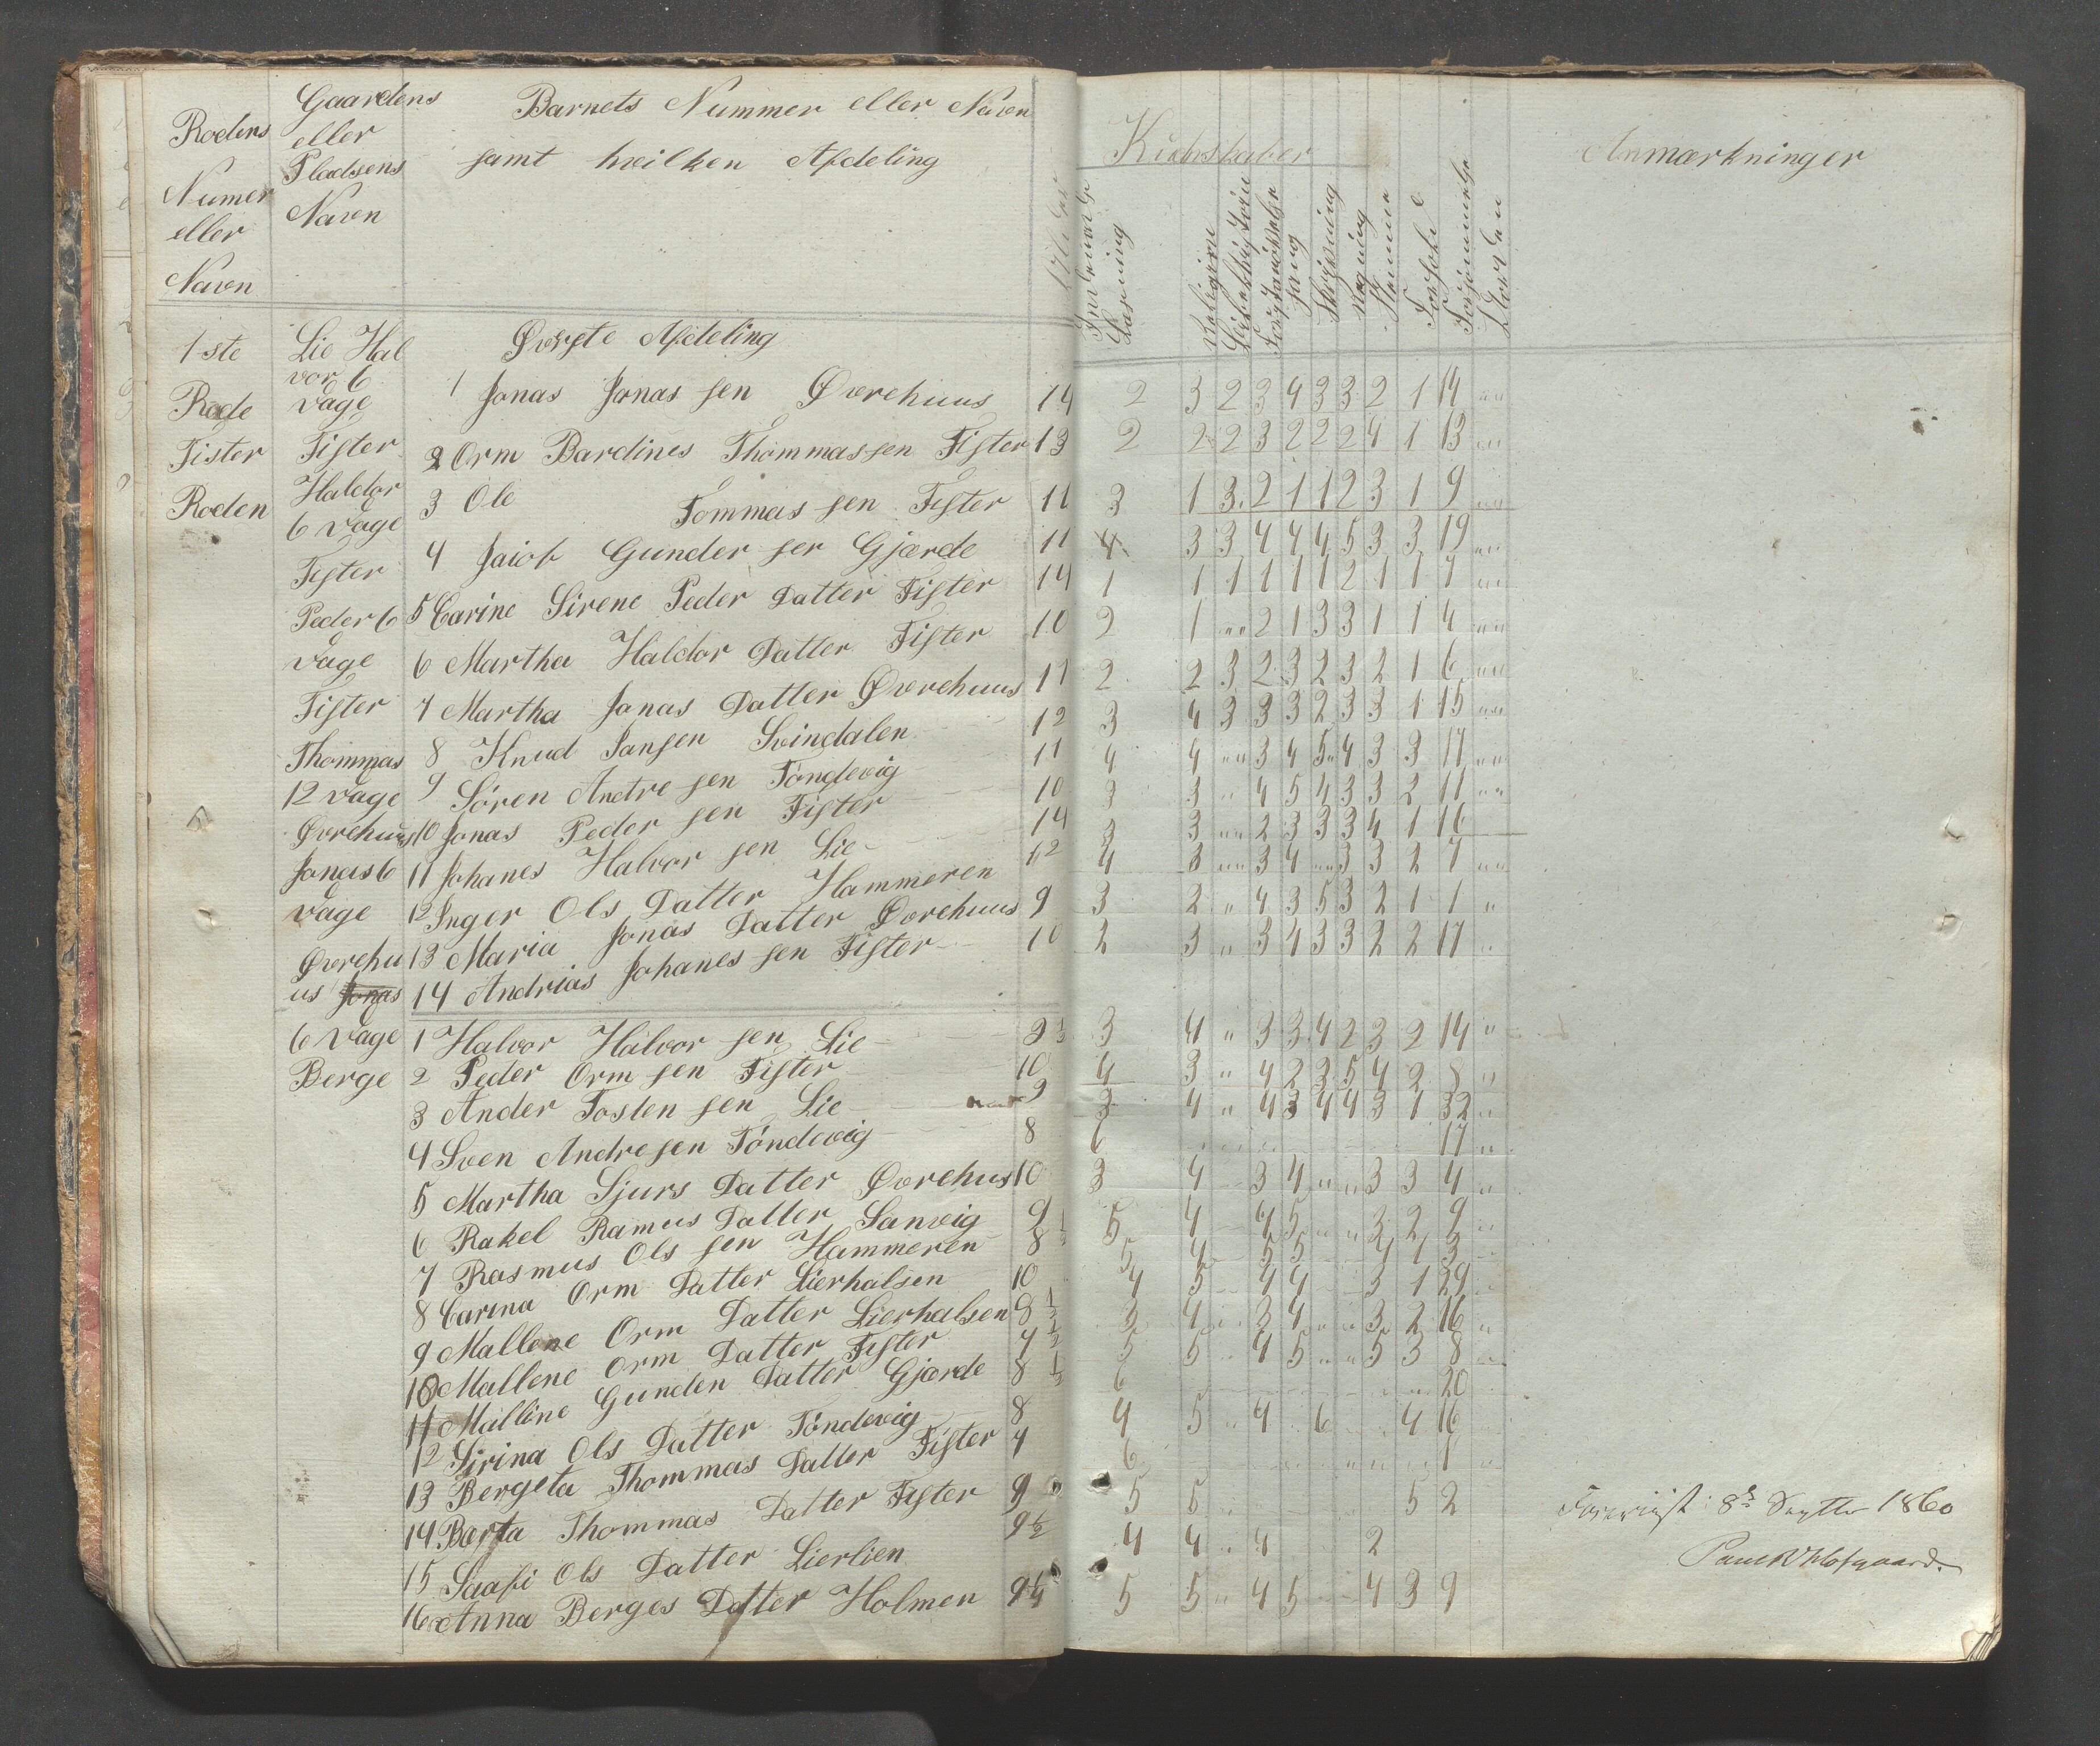 Rodens
Numer
eller
Navn
Gaardens
eller
Pladsens
Navn
Barnets Nummer eller Navn
samt hvilken Afdeling
Kundskaber
Anmærkninger
Læsning
Religion
Sang
Skrivning
Regning
Forhold
1ste
Rode
Fister
Roden
Lie Hal
vor 6
Dage
Fister
Haldor
6 Dage
Fister
Peder 6
Dage
Fister
Thommas
12 Dage
Øvrehuus
Jonas 6
Dage
Øvrehu
us Jonas
6 Dage
Berge
Øverste Afdeling
1 Jonas Jonas sen Øvrehuus 14 2 3 2 3 4 3 3 2 1 14 " "
2 Orm Bardines Thommas sen Fister 13 2 2 2 3 2 2 2 4 1 13 " "
3 Ole Tommas sen Fister 11 3 1 3 2 1 1 2 3 1 9 " "
4 Jaiob Gunder sen Gjærde 11 4 3 3 4 4 4 5 3 3 19 " "
5 Carine Sirene Peder Datter Fister 14 1 1 1 1 1 1 2 1 1 7 " "
6 Martha Haldor Datter Fister 10 2 1 " " 2 1 3 3 1 1 4 " "
7 Martha Jonas Datter Øvrehuus 11 2 2 3 2 3 2 3 2 1 6 " "
8 Knud Jansen Svindalen 12 3 4 3 3 3 2 3 3 1 15 " "
9 Sören Andre sen Töndevig 11 4 4 " " 3 4 5 4 3 3 17 " "
10 Jonas Peder sen Fister 10 3 3 " 4 5 4 3 3 2 11 " "
11 Johanes Halvor sen Lie 14 3 3 " " 2 3 3 3 4 1 16
12 Inger Ols Datter Hammeren 12 4 3 " " 3 4 " " 3 3 2 7 " "
13 Maria Jonas Datter Øvrehuus 9 3 2 " 4 3 5 3 2 1 1 "
14 Andrias Johanes sen Fister 10 2 3 " 3 4 3 3 2 2 17 "
1 Halvor Halvor sen Lie 9 1/2 3 4 " 3 3 4 2 3 2 14 "
2 Peder Orm sen Fister 10 4 3 " 4 2 3 5 4 2 8 "
3 Ander Tosten sen Lie 9 3 4 " 4 3 4 4 3 1 32 "
4 Sven Andresen Töndevig 8 6 17 "
5 Martha Sjurs Datter Øvrehus 10 3 4 3 4 " " 3 3 4 "
6 Rakel Ramus Datter Sanvig 9 1/2 5 4 4 5 " " 3 2 9 "
7 Rasmus Ols sen Hammeren 8 5 4 5 5 4 1 3
8 Carina Orm Datter Lierhalsen 10 4 5 4 4 3 1 29 "
9 Mallene Orm Datter Lierhalsen 8 1/2 3 4 3 4 " " 3 2 16 "
10 Mallene Orm Datter Fister 7 1/2 5 5 4 5 " " 5 3 8 "
11 Malline Gunden Datter Gjærde 8 1/2 6 20
12 Sirina Ols Datter Töndevig 8 4 5 " 4 6 4 16
13 Bergeta Thommas Datter Fister 7 6 1
14 Berta Thommas Datter Fister 9 5 5 5 2
15 Saafi Ols Datter Lierlien 9 1/2 4 4 " 4 2
16 Anna Berges Datter Holmen 9 1/4 5 5 " 4 5 4 3 9
8de Septbr 1860